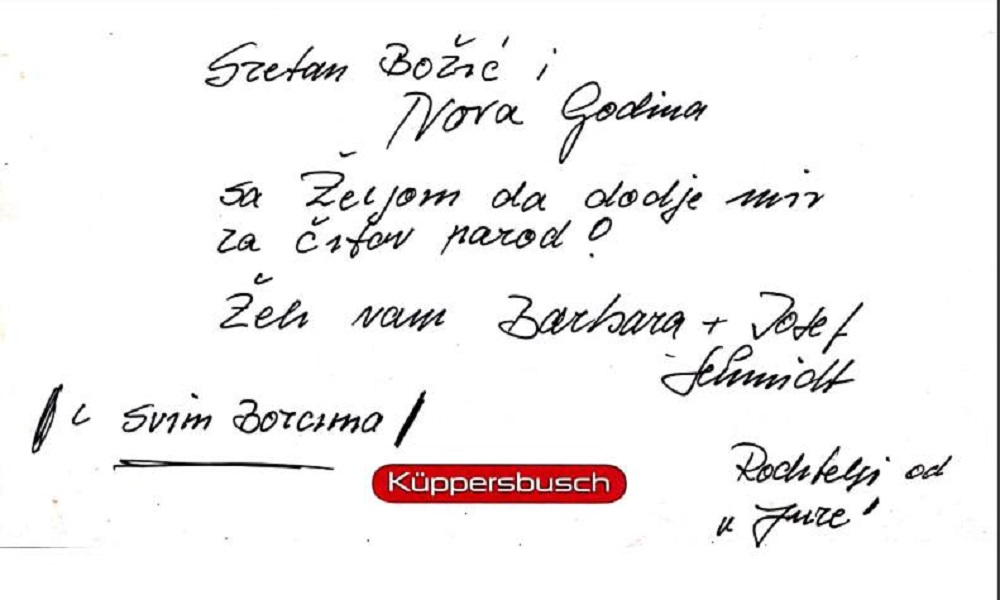 Sretan Božić i
Nova Godina
sa Željom da dodje mir
za čitav narod!
Želi vam Barbara + Josef
Schmidt
/ i svim Borcima /
Küppersbusch
Roditelji od
"Jure"